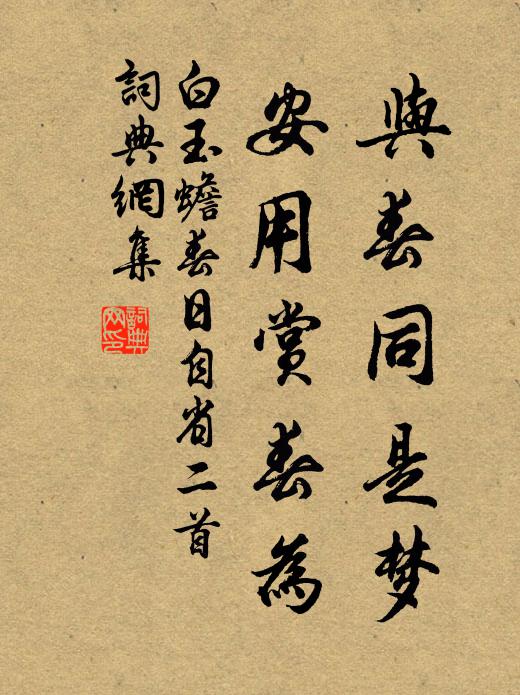 與春同是梦
安用赏春為
白玉蟾春日自省二首
詞典網集
詞典网印